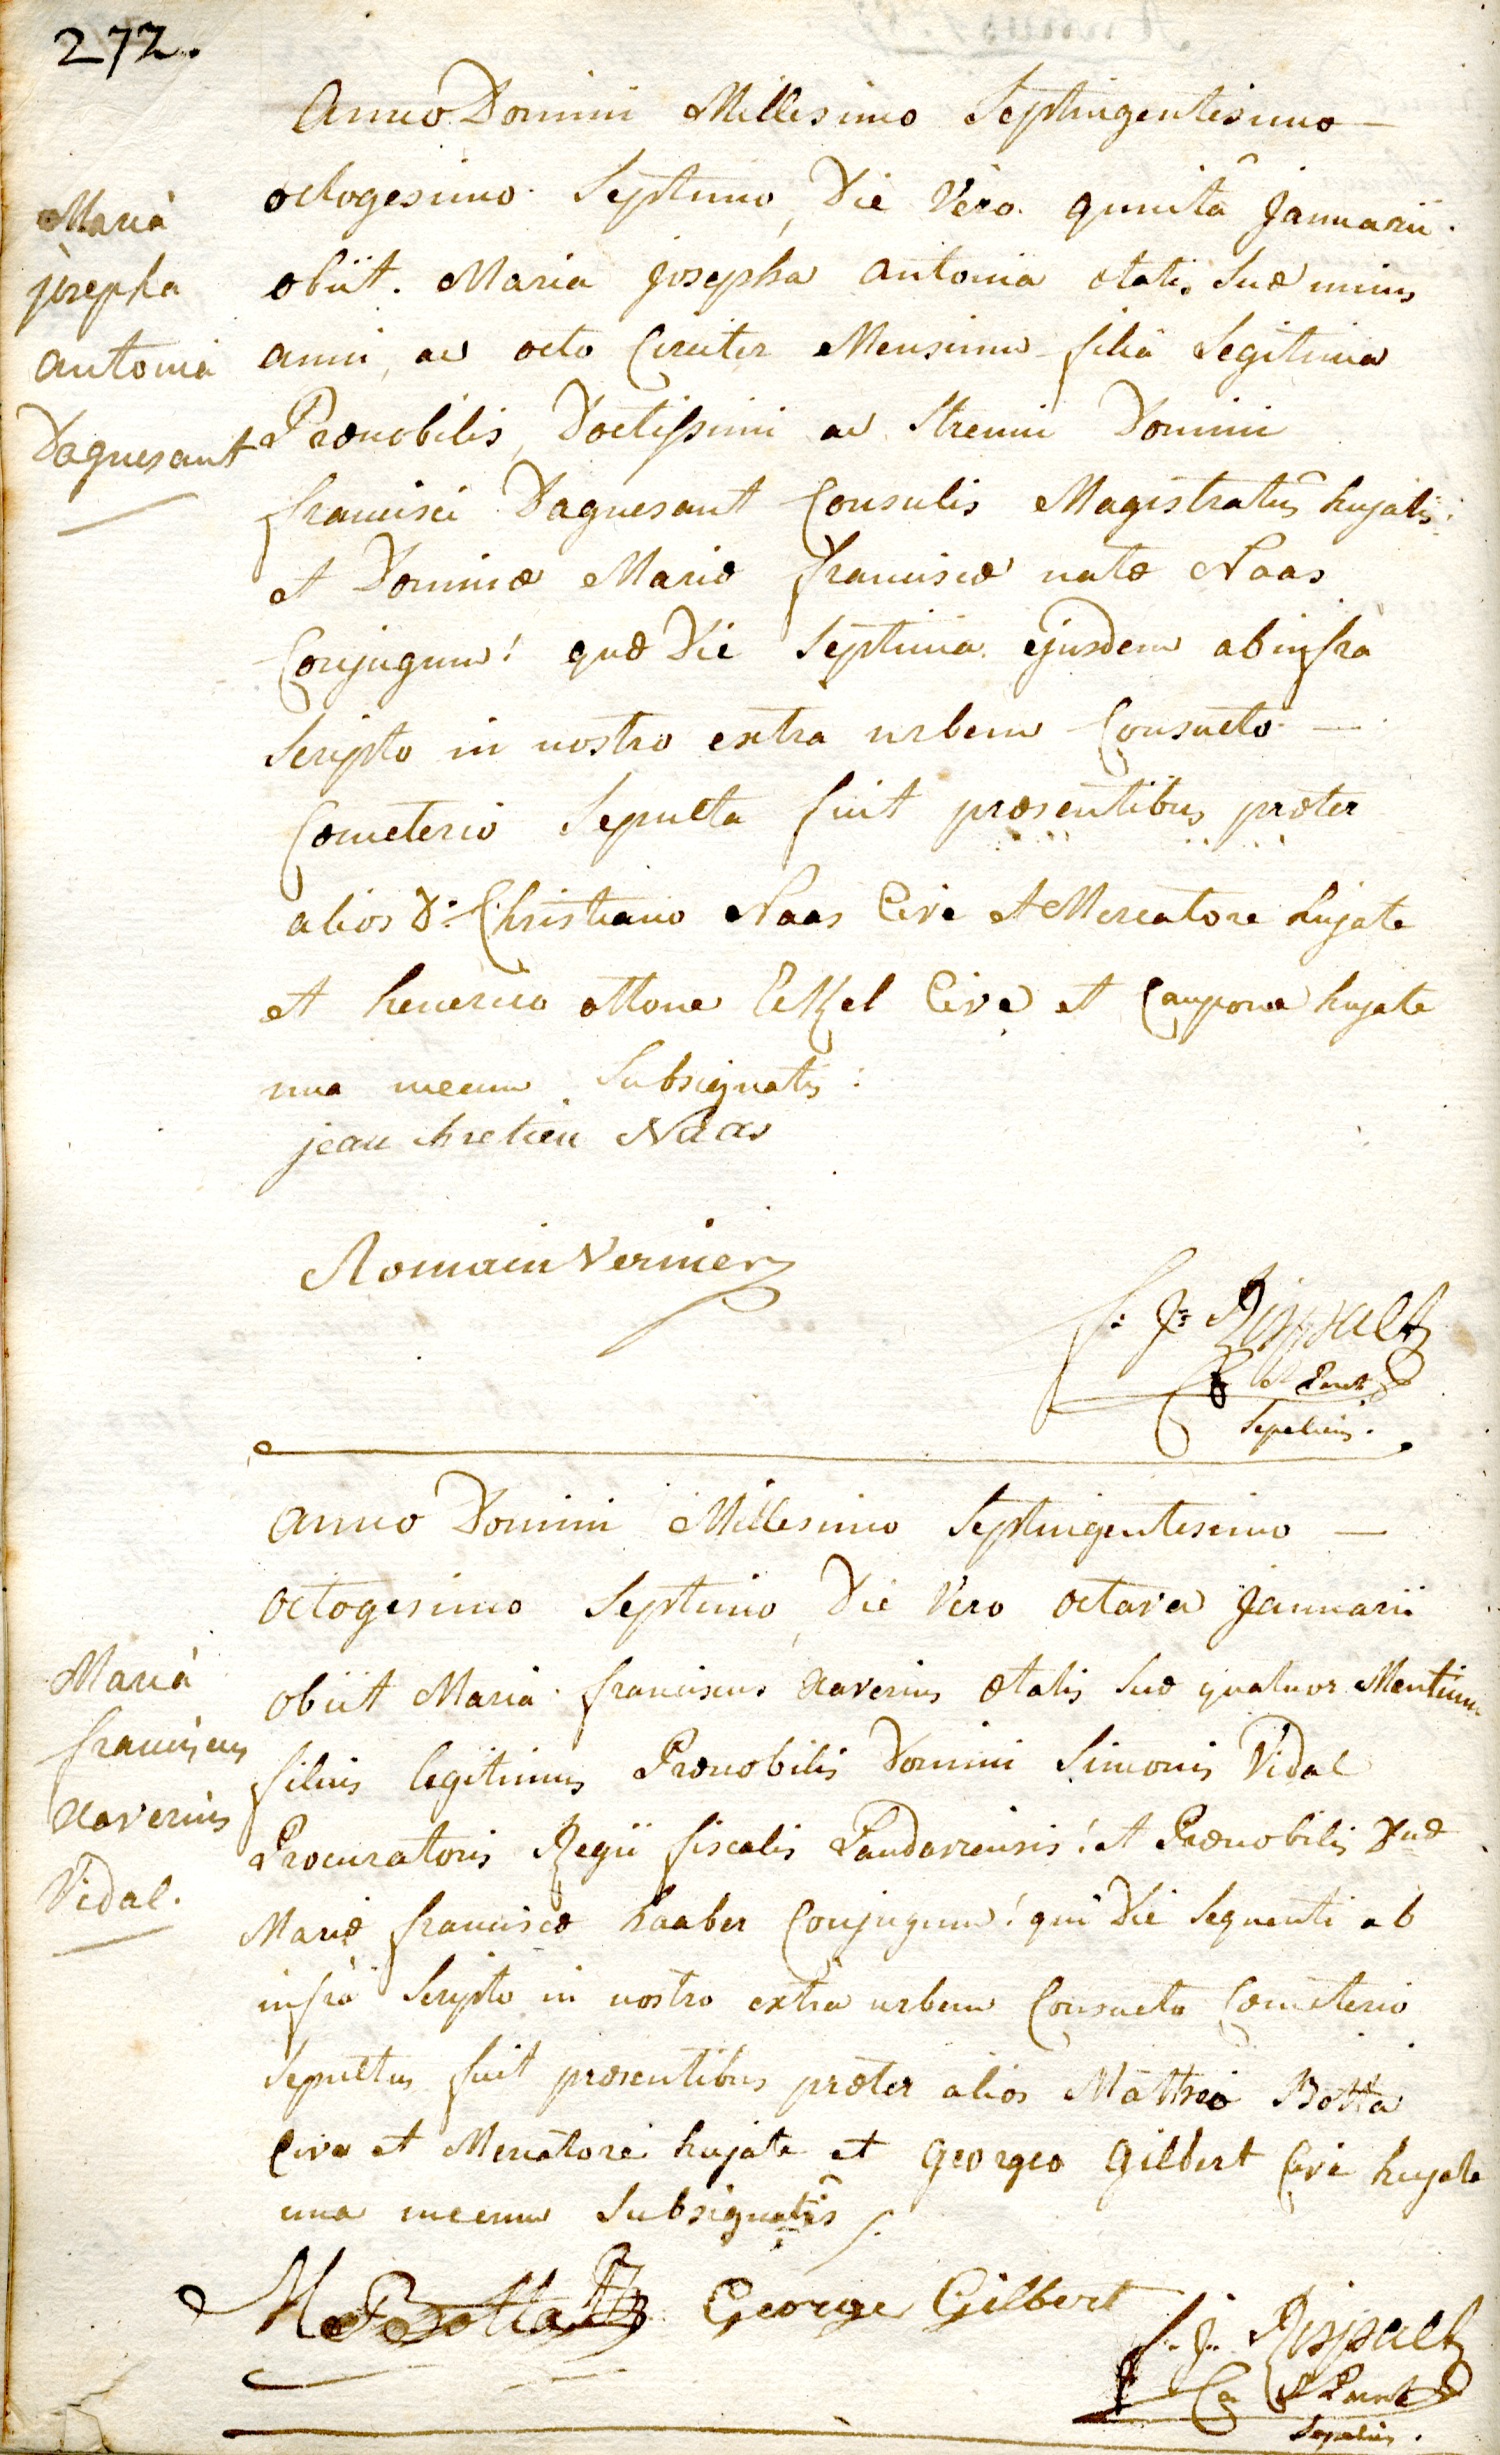 272.
Anno Domini Millesimo Septingentesimo —
octogesimo Septimo, Die Vero quinta Januarii
Maria
Josepha
Antonia
Daguesant
obiit. Maria Josepha Antonia ætatis Suæ unius
anni, ac octo Circiter Mensium filia Legitima
Prænobilis, Doctissimi ac Strenui Domini
francisci Daguesant Consulis Magistratus hujatis:
et Dominæ Mariæ franciscæ natæ Naas
Conjugum! quæ Die Septima ejusdem ab infra
Scripto in nostro extra urbem Consueto —
Cœmeterio Sepulta fuit præsentibus præter
alios D: Christiano Naas Cive et Mercatore hujate
et henerico ottone Cive et Caupone hujate
una mecum Subsignatis:
jean chretien Naas
Romain Vernier
f: J: Rispalt
Sepeliens.
anno Domini Millesimo Septingentesimo —
octogesimo Septimo, Die Vero octava Januarii
Maria
franciscus
Xaverius
Vidal.
obiit Maria franciscus Xaverius ætatis Suæ quatuor Mentium
filius legitimus Prænobilis Domini Simonis Vidal
Procuratoris Regii fiscalis Landaviensis! et Prænobilis Dnæ
Mariæ franciscæ haaber Conjugum! qui Die Sequenti ab
infra Scripto in nostro extra urbem Consueto Cœmeterio
Sepultus fuit præsentibus præter alios Matheo Botta
Cive et Mercatore hujate et Georgeo Gilbert Cive hujate
una mecum Subsignatis
M Botta George Gilbert
f: J: Rispalt
Sepeliens.